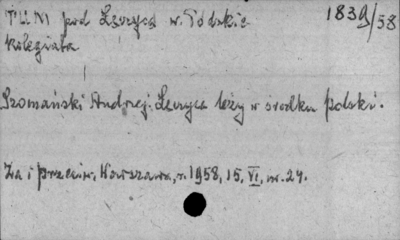 TUM pod Łęczycą w. Łódzkie 1839/58
Kolegiata
Szomański Andrzej: Łęczyca leży w środku polski.
Za i przeciw, Warszawa, r. 1958, 15. VI, nr. 24.